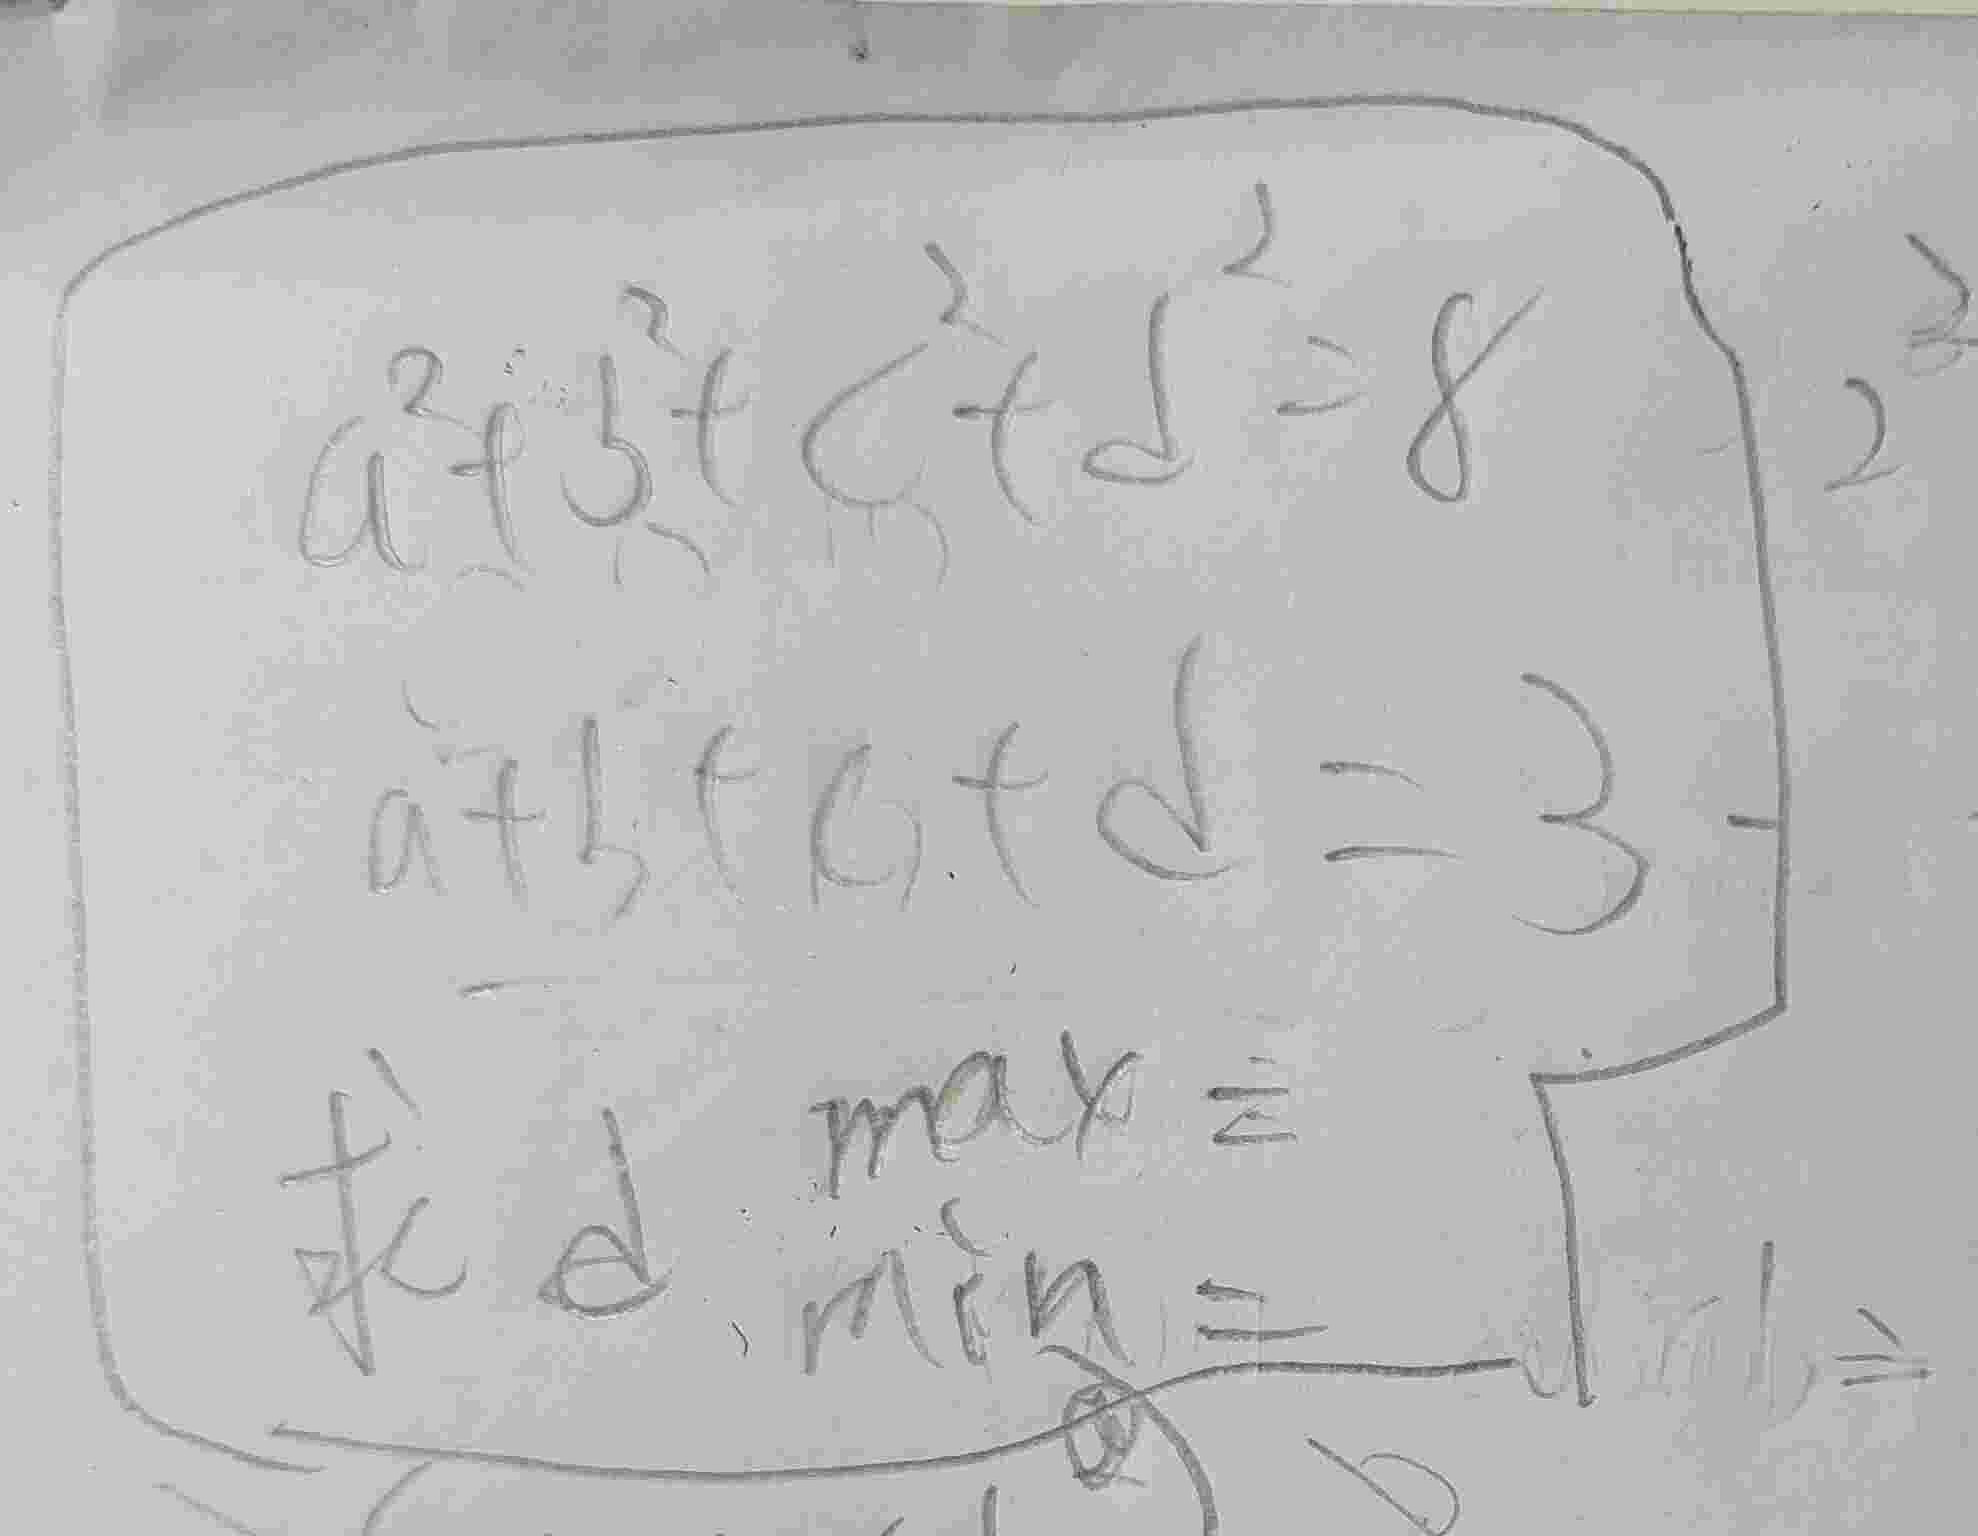 a²+b²+c²+d²=8
a+b+c+d=3
求d max=
min=